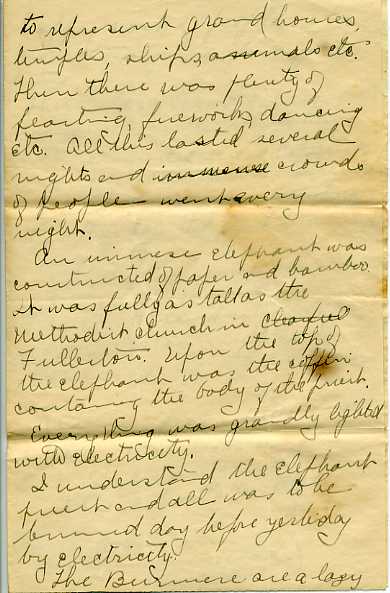 to represent grand houses,
temples, ships animals etc.
Then there was plenty of
feasting, fireworks, dancing
etc. All this lasted several
nights and immense crowds
of people went every
night.
An immese elephant was
constructed of paper and bamboo.
It was fully as tall as the
Methodist church in
Fullerton. Upon the top of
the elephant was the coffin
containing the body of the priest.
Everything was grandly lighted
with electricity.
I understand the elephant
priest and all was to be
burned day before yesterday
by electricity.
The Burmese are a lazy